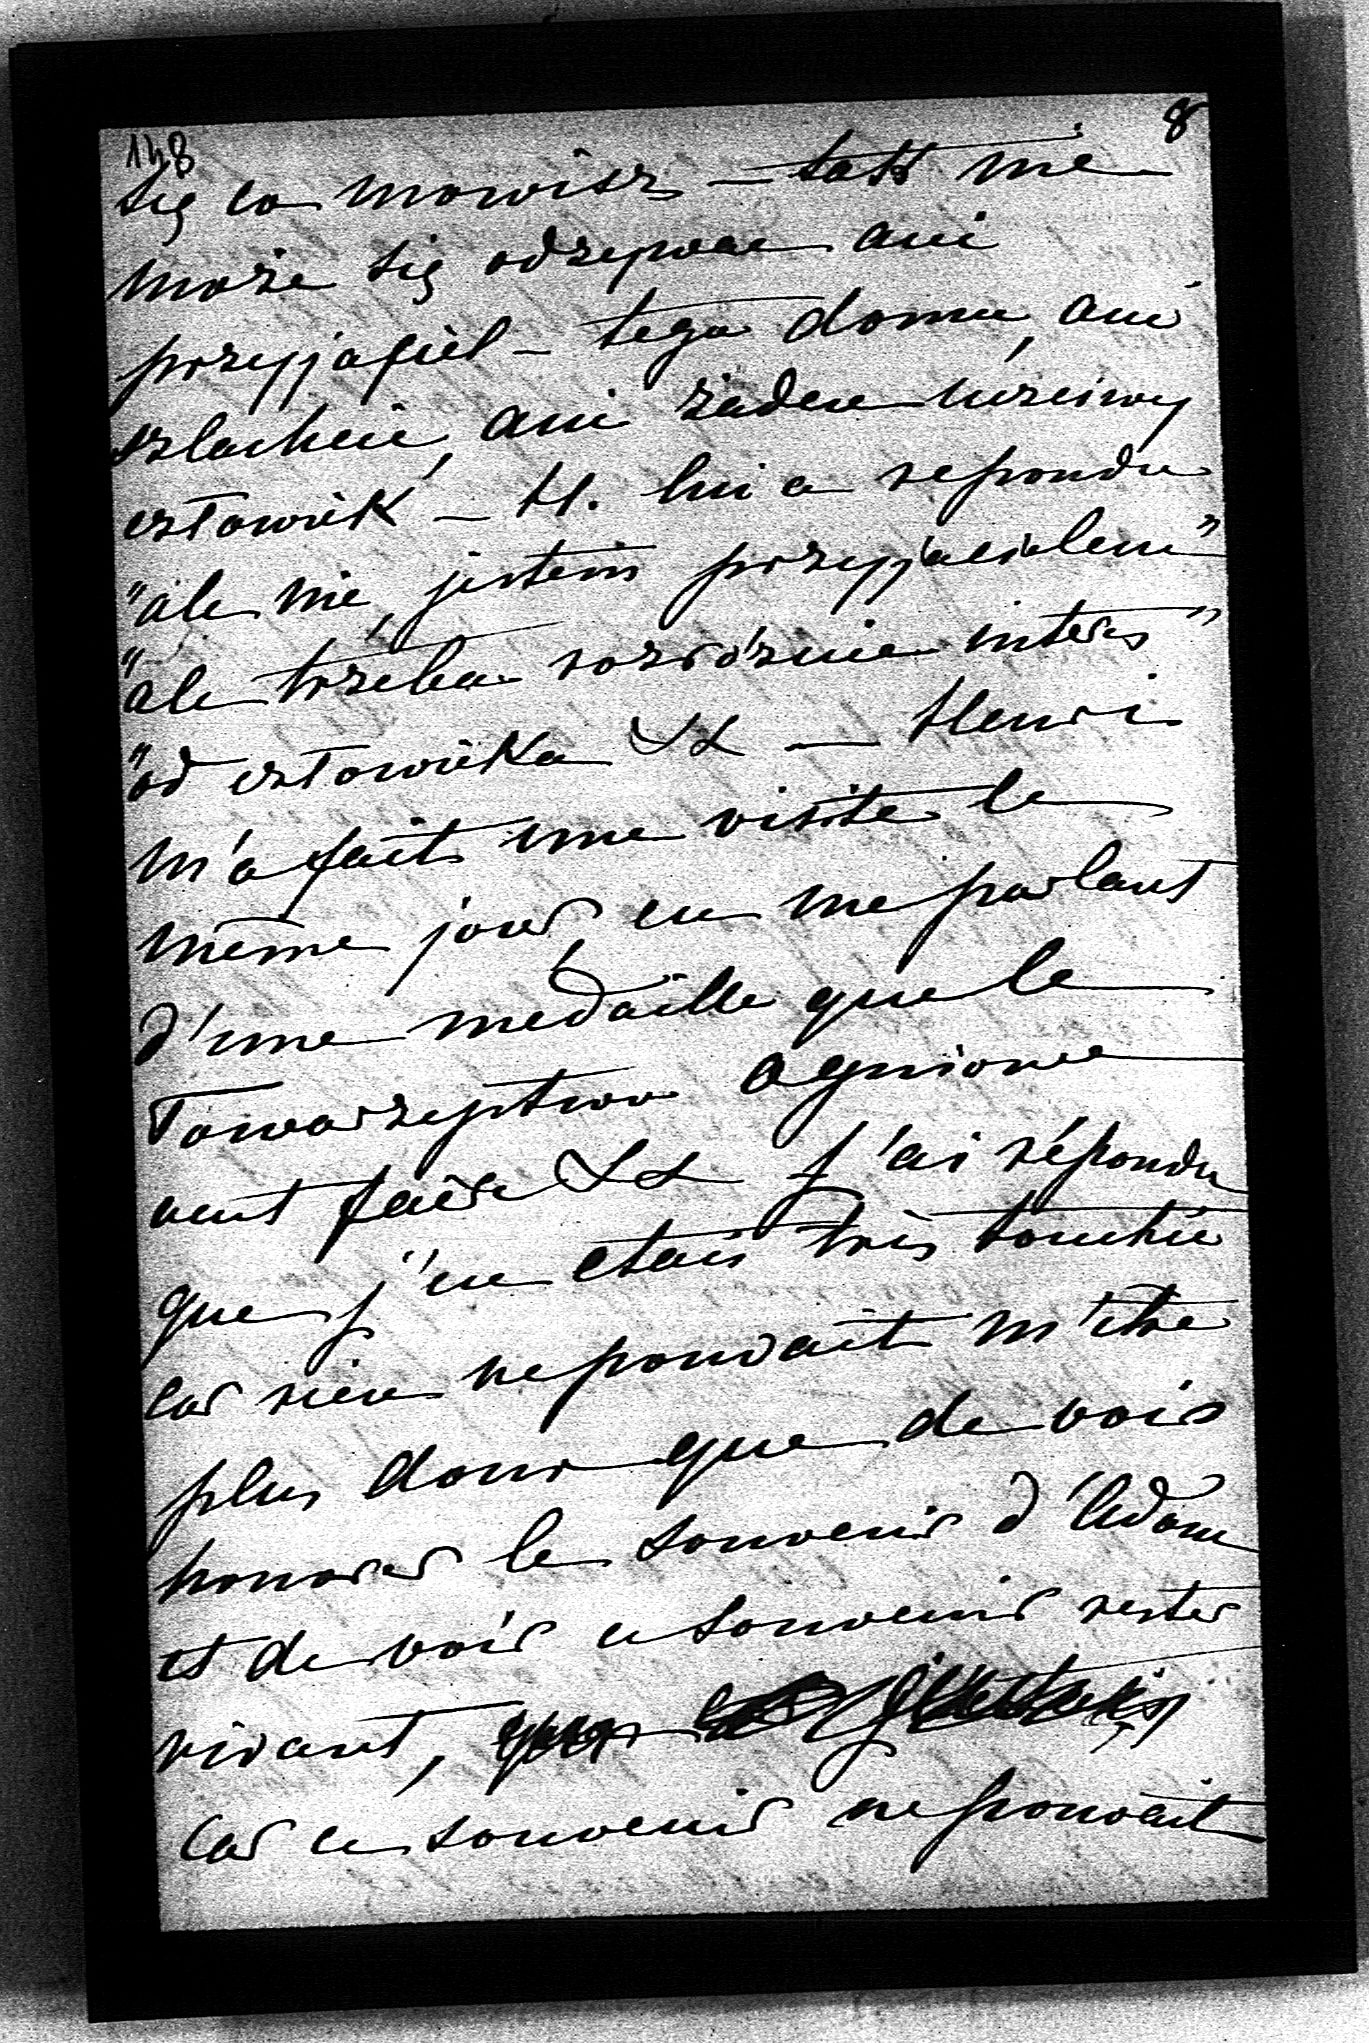 148 8
się co mowisz – tak nie
może się odzywac ani
przyjaciel – tego domu, ani
szlachcic, ani żaden uczciwy
człowiek – H. lui a repondu
"ale nie jestem przyjacielem"
"ale trzeba rozróznic interes"
"od człowieka && – Henri
m'a fait une visite le
même jour, en me parlant
d'une medaille que le
Towarzystwo Agnionome
veut faire && j'ai répondu
que j'en etais très touchée
car rien ne pouvait m'être
plus doux que de voir
honorer le souvenir d'Adam
et de voir ce souvenir rester
vivant,
car ce souvenir ne pouvait